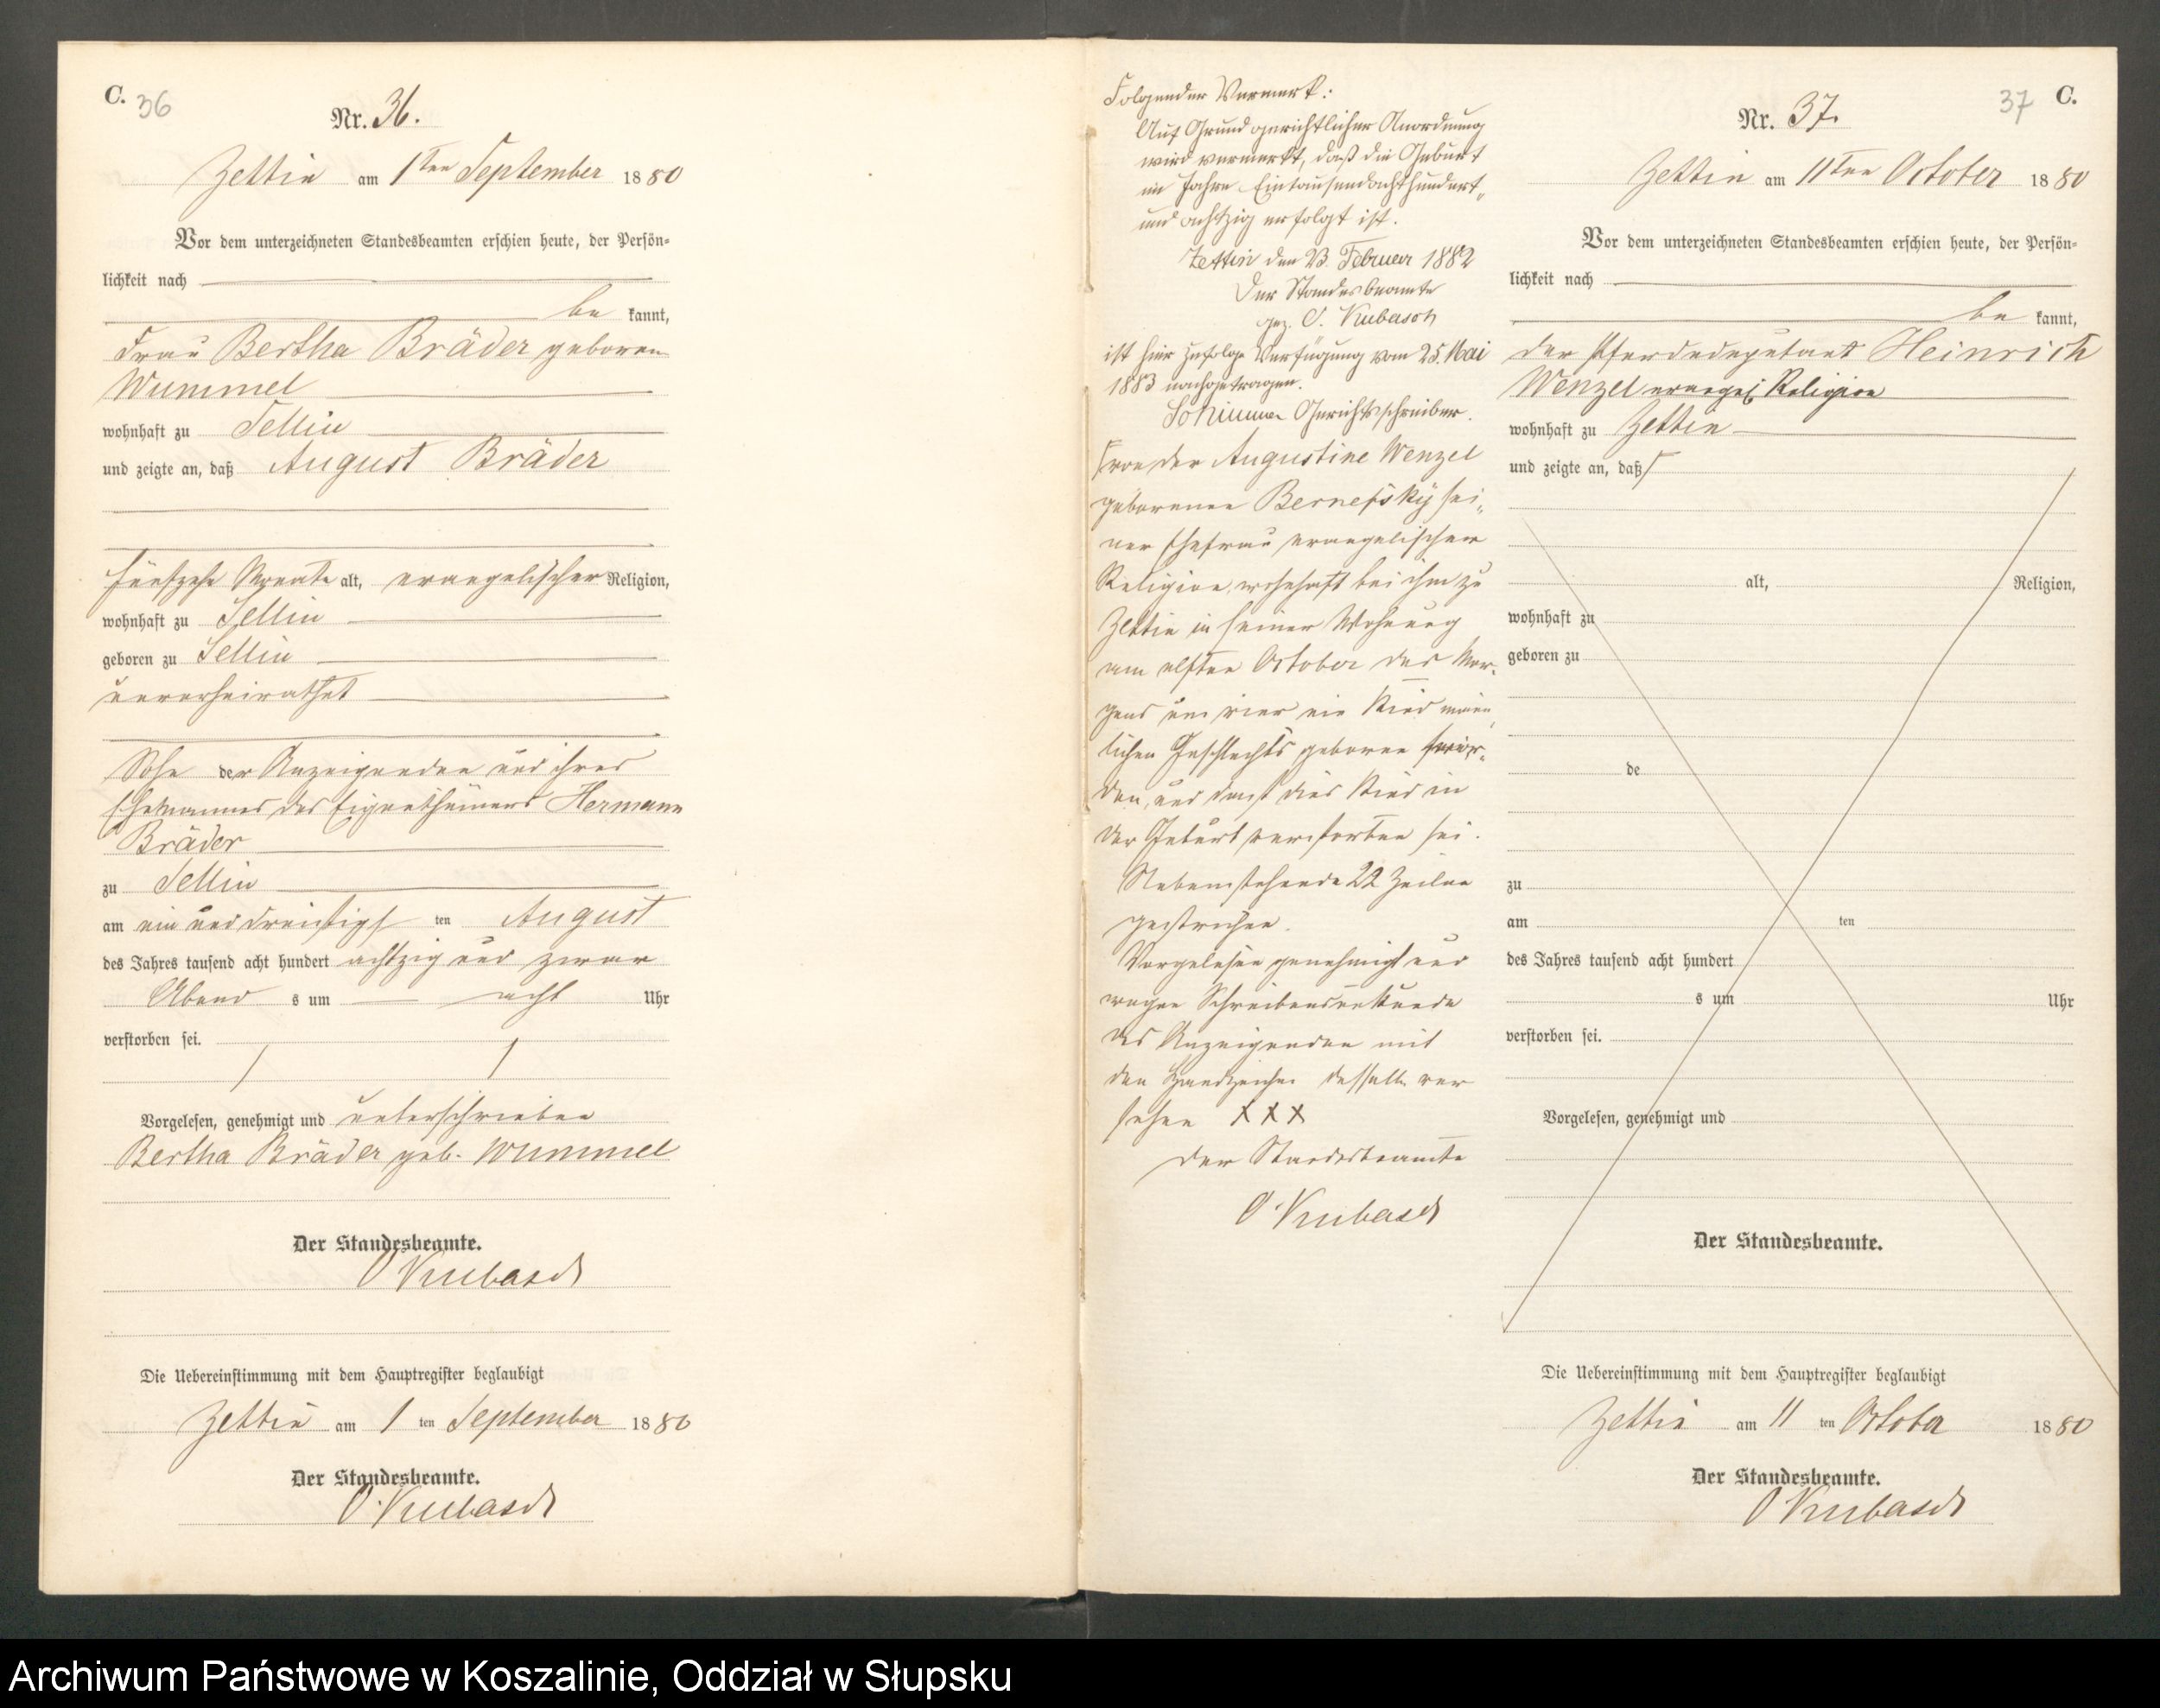 C. 36
Nr. 36.
Zettin am 1ten September 1880
Vor dem unterzeichneten Standesbeamten erschien heute, der Persön=
lichkeit nach
be kannt,
Frau Bertha Bräder geboren
Wummel
wohnhaft zu Sellin
und zeigte an, daß August Bräder
fünfzehn Monate alt, evangelischer Religion,
wohnhaft zu Sellin
geboren zu Sellin
unverheirathet
Sohn der Anzeigenden und ihres
Ehemannes des Eigenthümers Hermann
Bräder
zu Sellin
am ein und dreißigst ten August
des Jahres tausend acht hundert achtzig und zwar
Abend s um acht Uhr
verstorben sei.
Vorgelesen, genehmigt und unterschrieben
Bertha Bräder geb. Wummel
Der Standesbeamte.
O Kubasch
Die Uebereinstimmung mit dem Hauptregister beglaubigt
Zettin am 1 ten September 1880
Der Standesbeamte.
O Kubasch
Folgender Vermerk:
Auf Grund gerichtlicher Anordnung
wird vermerkt, daß die Geburt
im Jahre Eintausendachthundert„
und achtzig erfolgt ist.
Zettin den 23. Februar 1882
Der Standesbeamte
gez. O. Kubasch
ist hier zufolge Verfügung vom 25. Mai
1883 nachgetragen.
Gerichtsschreiber.
von der Augustine Wenzel
geborenen Bernefsky sei„
ner Ehefrau evangelischer
Religion, wohnhaft bei ihm zu
Zettin in seiner Wohnung
am elften October des Mor„
gens um vier ein Kind männ„
lichen Geschlechts geboren wor„
den, und daß dies Kind in
der Geburt verstorben sei.
Nebenstehende 22 Zeilen
gestrichen.
Vorgelesen genehmigt und
wegen Schreibensunkunde
des Anzeigenden mit
den Handzeichen desselb. ver
sehen XXX
Der Standesbeamte
O Kubasch
37 C.
Nr. 37.
Zettin am 11ten October 1880
Vor dem unterzeichneten Standesbeamten erschien heute, der Persön=
lichkeit nach
be kannt,
der Pferdedeputant Heinrich
Wenzel evangel. Religion
wohnhaft zu Zettin
und zeigte an, daß
alt, Religion,
wohnhaft zu
geboren zu
de
zu
am ten
des Jahres tausend acht hundert
s um Uhr
verstorben sei.
Vorgelesen, genehmigt und
Der Standesbeamte.
Die Uebereinstimmung mit dem Hauptregister beglaubigt
Zettin am 11 ten October 1880
Der Standesbeamte.
O Kubasch
Archiwum Państwowe w Koszalinie, Oddział w Słupsku